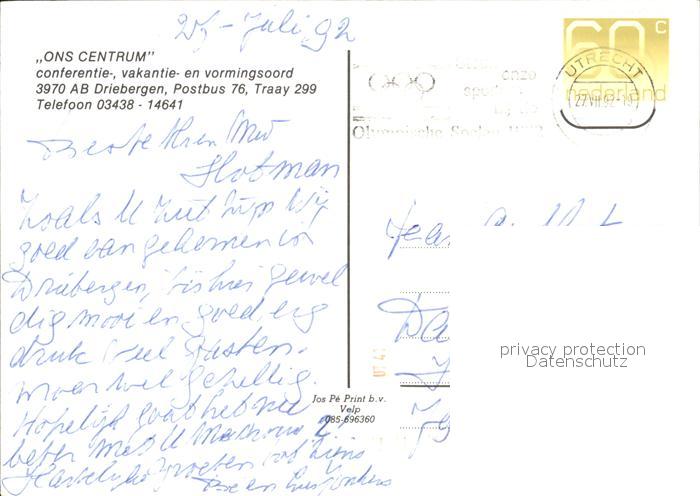 25-Juli 92
„ONS CENTRUM"
conferentie-, vakantie- en vormingsoord
3970 AB Driebergen, Postbus 76, Traay 299
Telefoon 03438 - 14641
60 c
nederland
UTRECHT
27.VII.92
onze
Olympische Spelen
Beste Hren Mev
Hofman
Zoals U ziet zijn Wij
goed aangekomen in
Driebergen, is hier gewel
dig mooi en goed erg
druk veel gasten.
maar wel gezellig.
Hopelijk gaat het nu
beter met U Mevrouw
Hartelijke groeten
privacy protection
Datenschutz
Jos Pé Print b.v.
Velp
085-696360